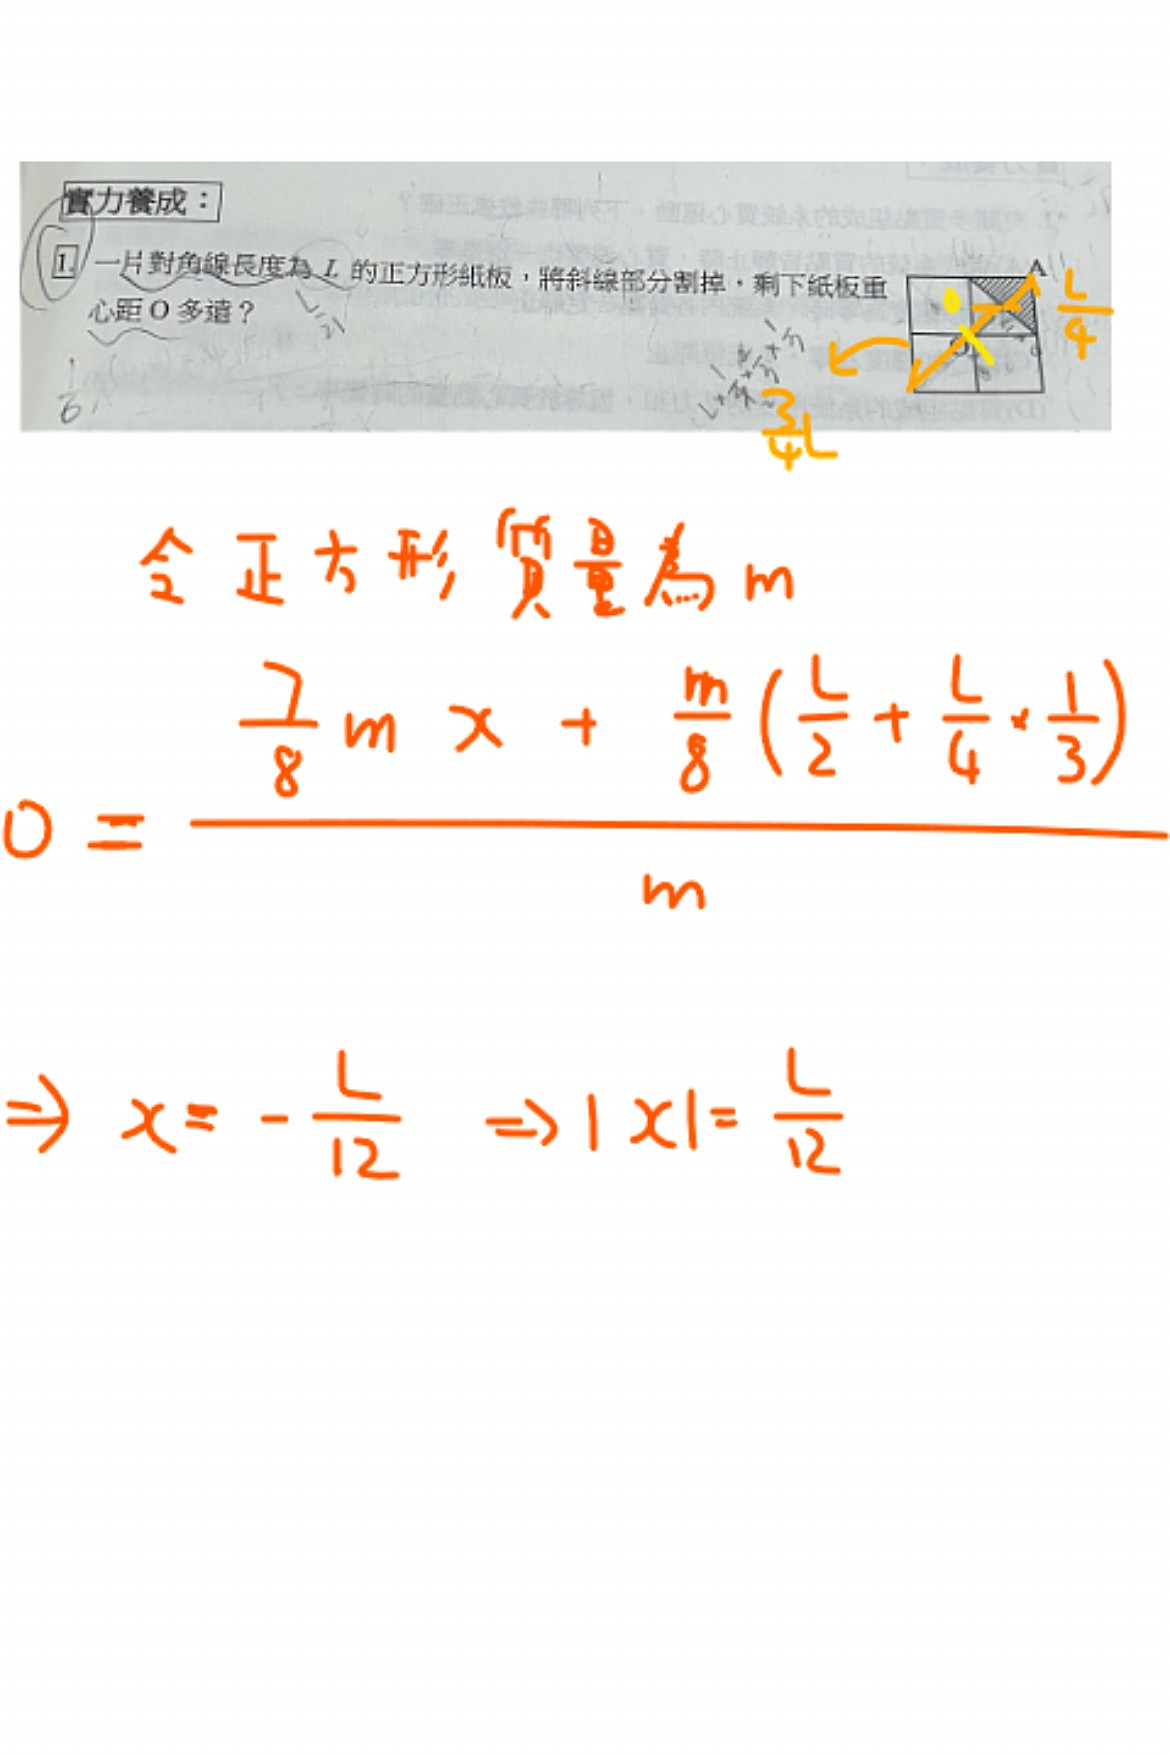 實力養成：
1. 一片對角線長度為 L 的正方形紙板，將斜線部分割掉，剩下紙板重
心距 O 多遠？
A
O
L/2
1/6
L/4
3/4 L
令正方形質量為m
0 = (7/8 m x + m/8 (L/2 + L/4 × 1/3)) / m
⇒ x = - L/12 ⇒ |x| = L/12